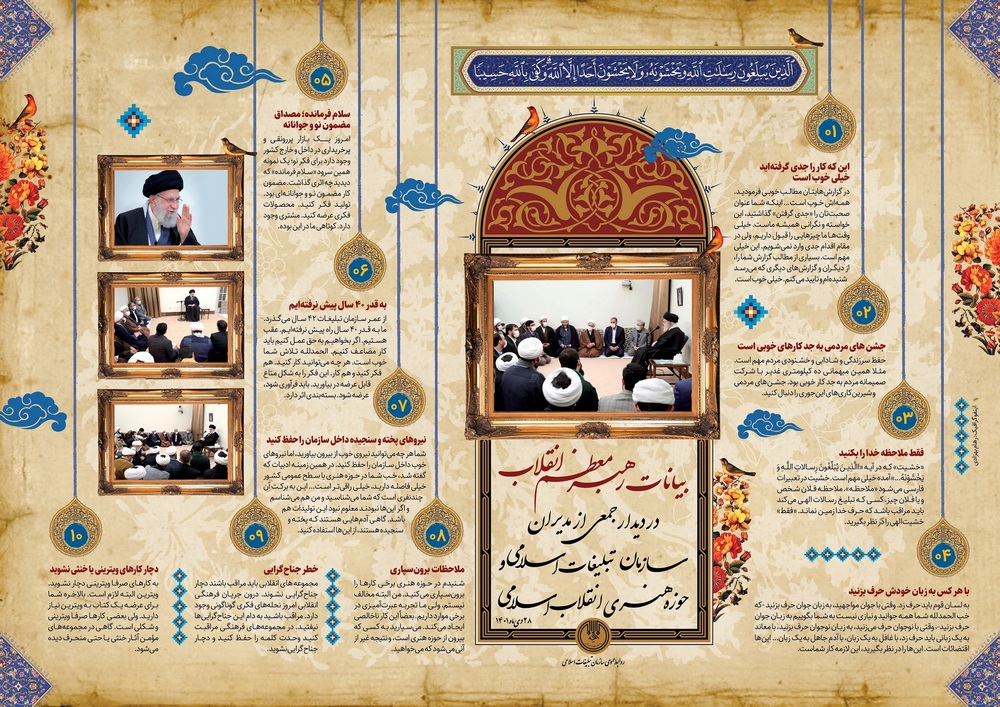 الَّذِينَ يُبَلِّغُونَ رِسَالَاتِ اللَّهِ وَيَخْشَوْنَهُ وَلَا يَخْشَوْنَ أَحَدًا إِلَّا اللَّهَ وَكَفَى بِاللَّهِ حَسِيبًا
بیانات رهبر معظم انقلاب
در دیدار جمعی از مدیران
سازمان تبلیغات اسلامی و
حوزه هنری انقلاب اسلامی
۲۸ دی ماه ۱۴۰۱
روابط عمومی سازمان تبلیغات اسلامی
۰۱
این که کار را جدی گرفته‌اید
خیلی خوب است
در گزارش‌هایتان مطالب خوبی فرمودید.
همه‌اش خوب است... اینکه شما عنوان
صحبتتان را «جدی گرفتن» گذاشتید، این
خواسته و نگرانی همیشه ماست. خیلی
وقت‌ها ما چیزهایی را قبول داریم، ولی در
مقام اقدام جدی وارد نمی‌شویم. این خیلی
مهم است. بسیاری از مطالب گزارش شما را،
از دیگران و گزارش‌های دیگری که می‌رسد
شنیده‌ام و تایید می‌کنم. خیلی خوب است.
۰۲
جشن های مردمی به جد کارهای خوبی است
حفظ سرزندگی و شادابی و خشنودی مردم مهم است.
مثلا همین میهمانی ده کیلومتری غدیر با شرکت
صمیمانه مردم به جد کار خوبی بود. جشن‌های مردمی
و شیرین‌کاری‌های این‌جوری را دنبال کنید.
۰۳
فقط ملاحظه خدا را بکنید
«خشیت» که در آیه «الَّذِینَ یُبَلِّغُونَ رِسالاتِ اللَّهِ وَ
یَخْشَوْنَهُ...» آمده خیلی مهم است. خشیت در تعبیرات
فارسی می‌شود «ملاحظه». ملاحظه فلان شخص
و یا فلان چیز. کسی که تبلیغ رسالات الهی می‌کند
باید مراقب باشد که حرف خدا زمین نماند. «فقط»
خشیت الهی را کز نظر بگیرید.
۰۴
با هر کس به زبان خودش حرف بزنید
به لسان قوم باید حرف زد. وقتی با جوان مواجهید، به زبان جوان حرف بزنید -که
خب الحمدلله شما همه جوانید و نیازی نیست به شما بگوییم به زبان جوان
حرف بزنید- وقتی با نوجوان حرف می‌زنید، به زبان نوجوان حرف بزنید، با معاند
به یک زبانی باید حرف زد، با غافل به یک زبان، با آدم جاهل به یک زبان... این‌ها
اقتضائات است. این‌ها را در نظر بگیرید، این لازمه کار شماست.
۰۵
سلام فرمانده؛ مصداق
مضمون نو و جوانانه
امروز یک بازار پررونقی و
پرخریداری در داخل و خارج کشور
وجود دارد برای فکر نو؛ یک نمونه
همین سرود «سلام فرمانده» که
دیدید چه اثری گذاشت. مضمون
کار مضمون نو و جوانانه‌ای بود.
تولید فکر کنید. محصولات
فکری عرضه کنید. مشتری وجود
دارد. کوتاهی ما در این بوده.
۰۶
به قدر ۴۰ سال پیش نرفته‌ایم
از عمر سازمان تبلیغات ۴۲ سال می‌گذرد.
ما به قدر ۴۰ سال راه پیش نرفته‌ایم. عقب
هستیم. اگر بخواهیم به حق عمل کنیم باید
کار مضاعف کنیم. الحمدلله تلاش شما
خوب است. هر چه می‌توانید کار کنید. هم
فکر کنید و هم کار، این فکر را به شکل متاع
قابل عرضه در بیاورید. باید فرآوری شود،
عرضه شود. بسته‌بندی اثر دارد.
۰۷
نیروهای پخته و سنجیده داخل سازمان را حفظ کنید
شما هر چه می‌توانید نیروی خوب از بیرون بیاورید، اما نیروهای
خوب داخل سازمان را حفظ کنید. در همین زمینه ادبیات که
گفته شد، خب شما در حوزه هنری با سطح عمومی کشور
خیلی فاصله دارید. خیلی راقی‌تر است... این به برکت آن
چند نفری است که شما می‌شناسید و من هم می‌شناسم
و اگر این‌ها نبودند معلوم نبود این تولیدات هم
باشد. گاهی آدم‌هایی هستند که پخته و
سنجیده هستند، از این‌ها استفاده کنید.
۰۸
ملاحظات برون‌سپاری
شنیدم در حوزه هنری برخی کارها را
برون‌سپاری می‌کنید. من البته مخالف
نیستم. ولی ما تجربه عبرت‌آمیزی در
برخی موارد داریم. بعضا این کار ناخالصی
ایجاد می‌کند. می‌سپارید به کسی که
بیرون از حوزه هنری است، و نتیجه غیر از
آنی می‌شود که می‌خواهید.
۰۹
خطر جناح‌گرایی
مجموعه‌های انقلابی باید مراقب باشند دچار
جناح‌گرایی نشوند. درون جریان فرهنگی
انقلابی امروز نحله‌های فکری گوناگونی وجود
دارد. مراقب باشید به دام این جناح‌گرایی‌ها
نیفتید. در مجموعه‌های فرهنگی مراقبت
کنید وحدت کلمه را حفظ کنید و دچار
جناح‌گرایی نشوید.
۱۰
دچار کارهای ویترینی یا خنثی نشوید
به کارهای صرفا ویترینی دچار نشوید.
ویترین البته لازم است. بالاخره شما
برای عرضه یک کتاب به ویترین نیاز
دارید. ولی بعضی کارها صرفا ویترینی
و شکلی است. گاهی در مجموعه‌های
مؤمن آثار خنثی یا حتی منحرف دیده
می‌شود.